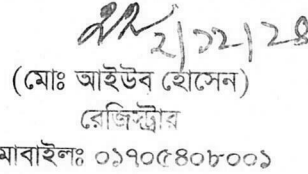 ২/১২/২৪
(মোঃ আইউব হোসেন)
রেজিস্ট্রার
মাবাইলঃ ০১৭০৫৪০৮০০১